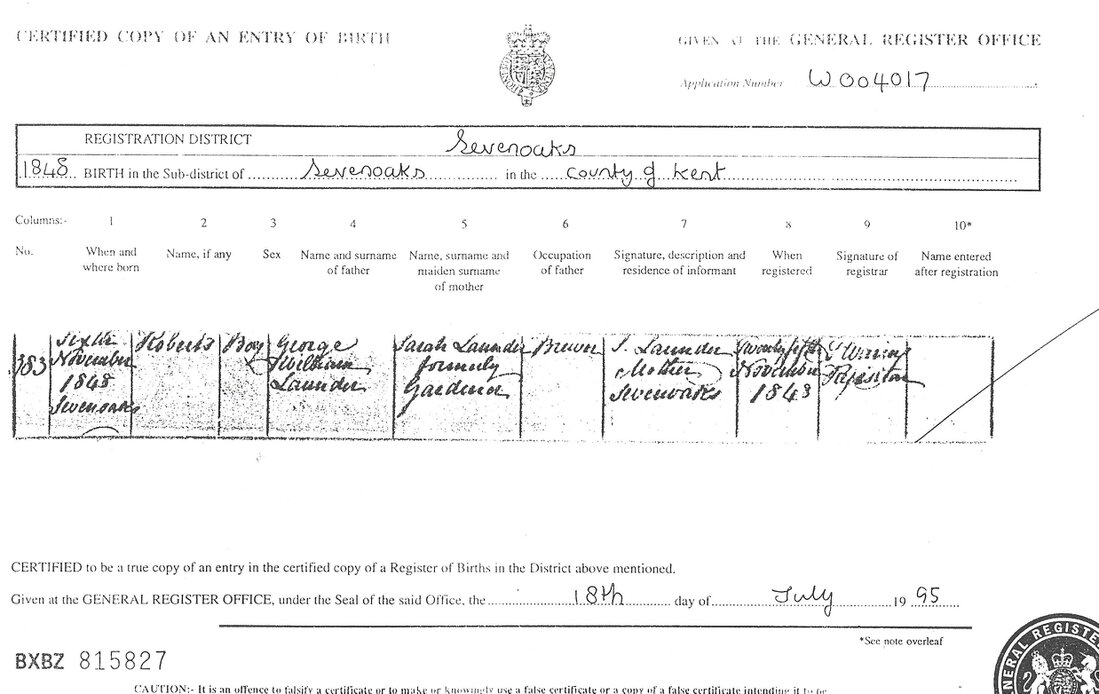 CERTIFIED COPY OF AN ENTRY OF BIRTH
GIVEN AT THE GENERAL REGISTER OFFICE
Application Number W004017
REGISTRATION DISTRICT Sevenoaks
1848 BIRTH in the Sub-district of Sevenoaks in the County of Kent
Columns:- 1 2 3 4 5 6 7 8 9 10*
No. When and where born Name, if any Sex Name and surname of father Name, surname and maiden surname of mother Occupation of father Signature, description and residence of informant When registered Signature of registrar Name entered after registration
383 Sixth November 1848 Sevenoaks Roberts Boy George William Launder Sarah Launder formerly Gardener Brewer S. Launder Mother Sevenoaks Twenty fifth November 1848 Registrar
CERTIFIED to be a true copy of an entry in the certified copy of a Register of Births in the District above mentioned.
Given at the GENERAL REGISTER OFFICE, under the Seal of the said Office, the 18th day of July 19 95
*See note overleaf
BXBZ 815827
GENERAL REGISTE
CAUTION:- It is an offence to falsify a certificate or to make or knowingly use a false certificate or a copy of a false certificate intending it to be